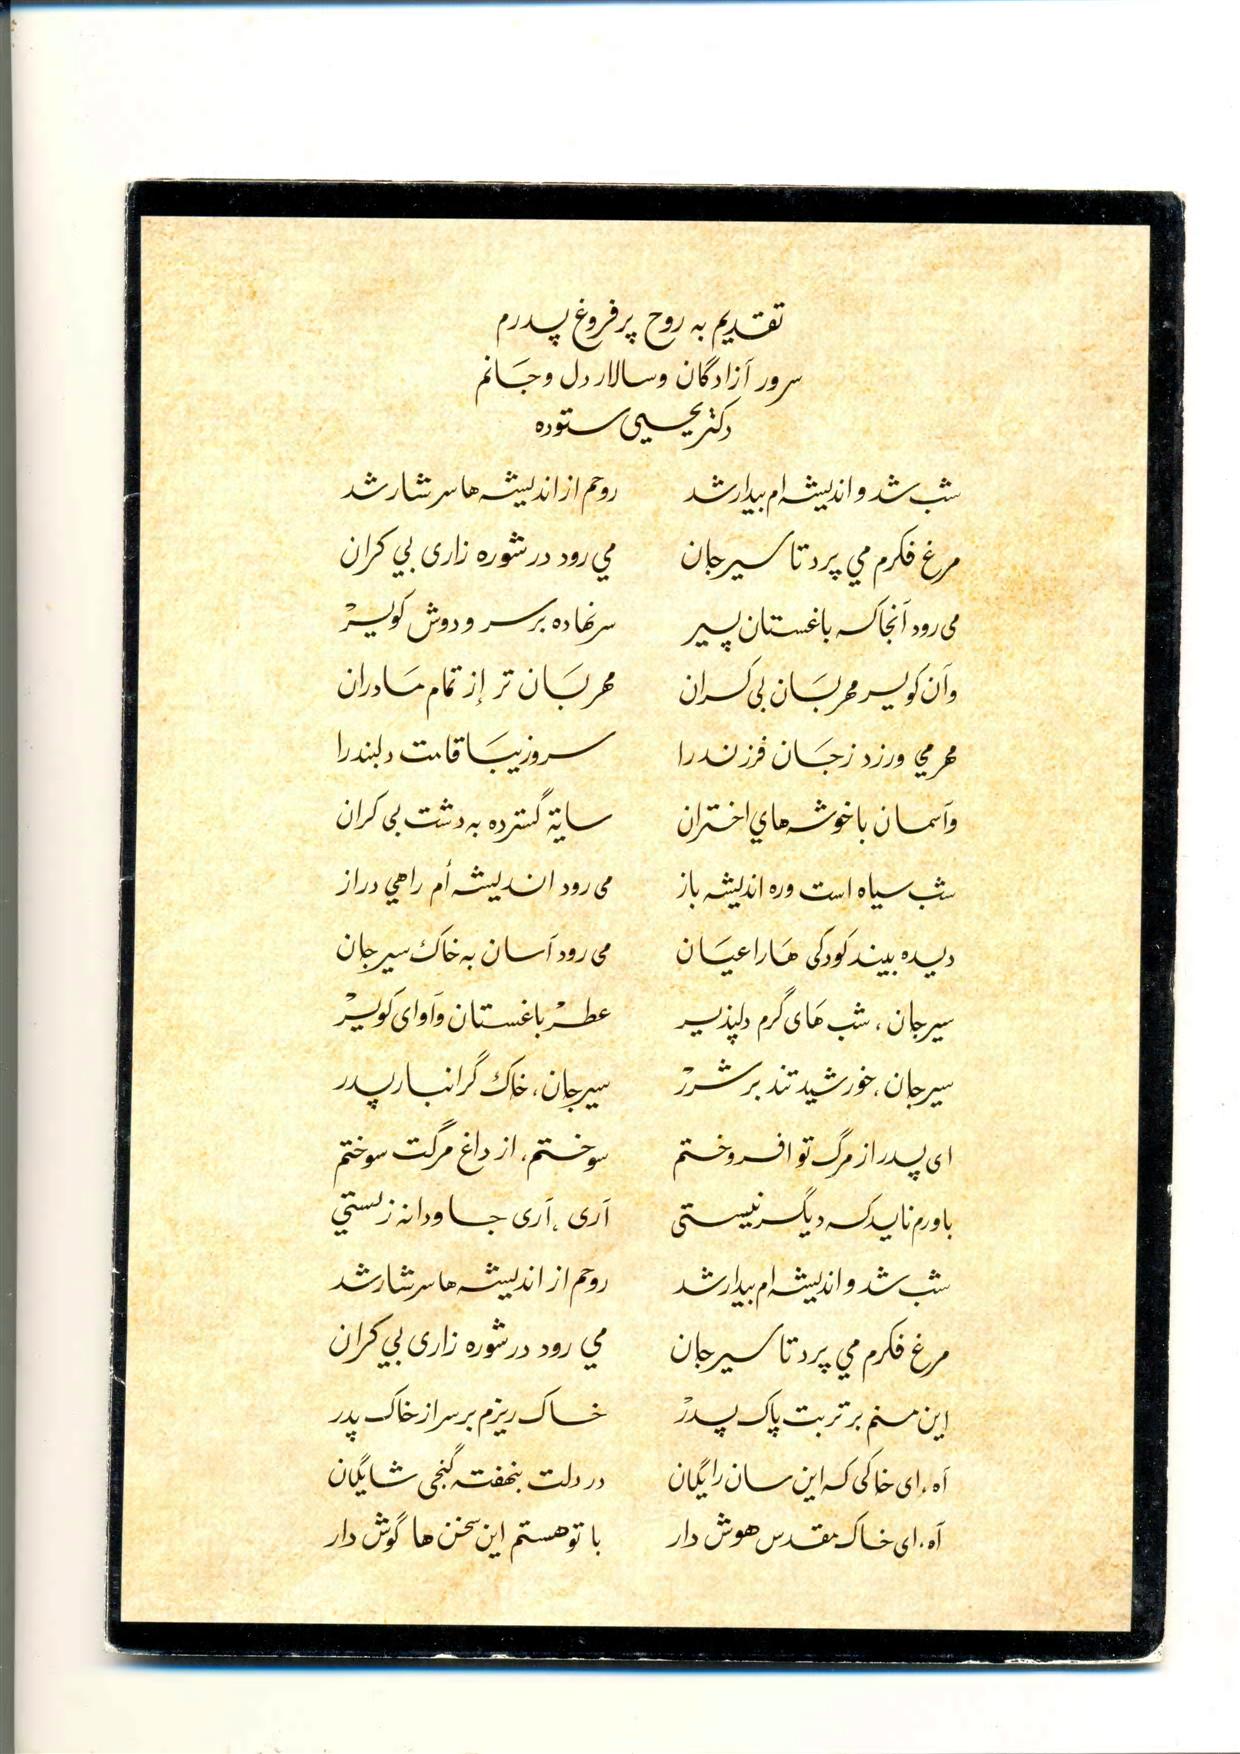 تقدیم به روح پرفروغ پدرم
سرور آزادگان و سالار دل و جانم
دکتر یحیی ستوده
شب شد و اندیشه ام بیدار شد روحم از اندیشه ها سرشار شد
مرغ فکرم می پرد تا سیرجان می رود در شوره زاری بی کران
می رود آنجا که باغستان پیر سر نهاده بر سر و دوش کویر
وآن کویر مهربان بی کران مهربان تر از تمام مادران
مهر می ورزد ز جان فرزند را سرو زیبا قامت دلبند را
وآسمان با خوشه های اختران سایه گسترده به دشت بی کران
شب سیاه است و ره اندیشه باز می رود اندیشه أم راهی دراز
دیده بیند کودکی ها را عیان می رود آسان به خاک سیرجان
سیرجان، شب های گرم دلپذیر عطر باغستان و آوای کویر
سیرجان، خورشید تند بر شرر سیرجان، خاک گرانبار پدر
ای پدر از مرگ تو افروختم سوختم، از داغ مرگت سوختم
باورم ناید که دیگر نیستی آری، آری جاودانه زیستی
شب شد و اندیشه ام بیدار شد روحم از اندیشه ها سرشار شد
مرغ فکرم می پرد تا سیرجان می رود در شوره زاری بی کران
این منم بر تربت پاک پدر خاک ریزم بر سر از خاک پدر
آه، ای خاکی که این سان رایگان در دلت بنهفته گنجی شایگان
آه، ای خاک مقدس هوش دار با تو هستم این سخن ها گوش دار